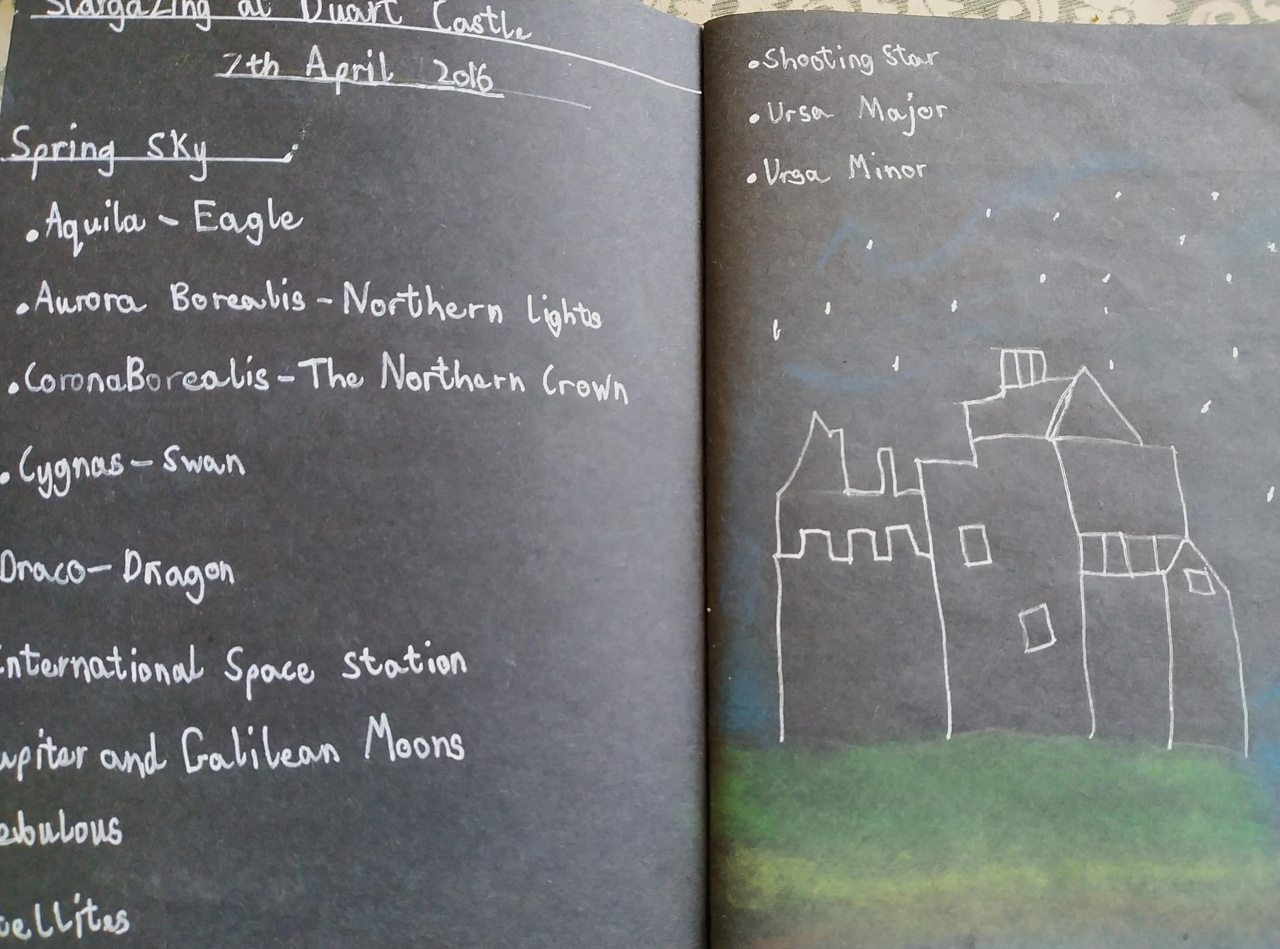 Stargazing at Duart Castle
7th April 2016
Spring Sky
•Aquila - Eagle
•Aurora Borealis - Northern Lights
•Corona Borealis - The Northern Crown
•Cygnas - Swan
Draco - Dragon
International Space Station
upiter and Galilean Moons
ebulous
tellites
•Shooting Star
•Ursa Major
•Ursa Minor